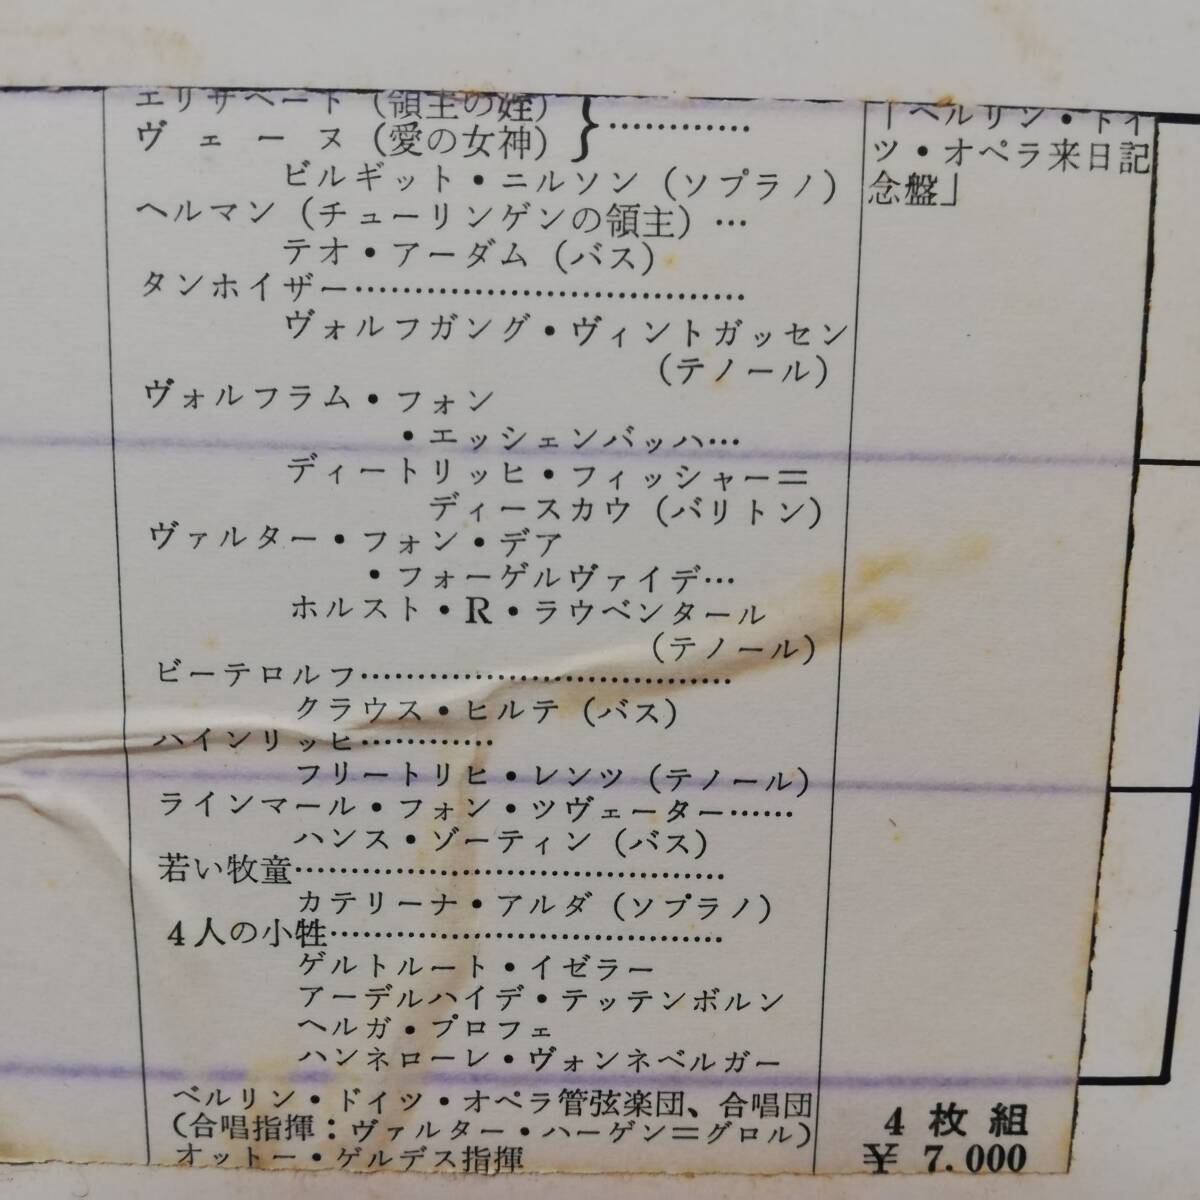 エリザベート（領主の姪）
ヴェーヌ（愛の女神）}…………
ビルギット・ニルソン（ソプラノ）
ヘルマン（チューリンゲンの領主）…
テオ・アーダム（バス）
タンホイザー………………………………
ヴォルフガング・ヴィントガッセン
（テノール）
ヴォルフラム・フォン
・エッシェンバッハ…
ディートリッヒ・フィッシャー＝
ディースカウ（バリトン）
ヴァルター・フォン・デア
・フォーゲルヴァイデ…
ホルスト・R・ラウベンタール
（テノール）
ビーテロルフ………………………………
クラウス・ヒルテ（バス）
ハインリッヒ…………
フリートリヒ・レンツ（テノール）
ラインマール・フォン・ツヴェーター……
ハンス・ゾーティン（バス）
若い牧童……………………………………
カテリーナ・アルダ（ソプラノ）
4人の小牲…………………………………
ゲルトルート・イゼラー
アーデルハイデ・テッテンボルン
ヘルガ・プロフェ
ハンネローレ・ヴォンネベルガー
ベルリン・ドイツ・オペラ管弦楽団、合唱団
（合唱指揮：ヴァルター・ハーゲン＝グロル）
オットー・ゲルデス指揮
「ベルリン・ドイ
ツ・オペラ来日記
念盤」
4枚組
¥7.000